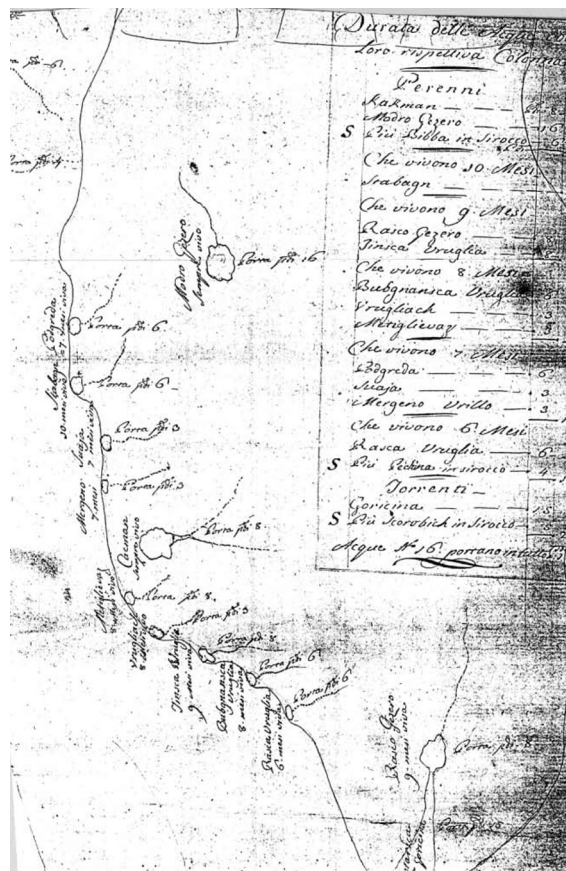 Durata delle Acque
Loro rispettiva Colonna
Perenni
Kakman — — — 8
Modro Gezero — — 16
S Più Bibba in Sirocco — 6
Che vivono 10 Mesi
Scabagn — — —
Che vivono 9 Mesi
Rasco Gezero — — 8
Jinsca Vruglia — — 8
Che vivono 8 Mesi
Bubgnansca Vruglia — 8
Vrugliach — — 3
Meriglievaz — — 8
Che vivono 7 Mesi
Podgreda — — 6
Suaja — — — 3
Mergeno Vrillo — — 3
Che vivono 6 Mesi
Rasca Vruglia — — 6
S Più Pechina in sirocco — 4
Torrenti —
Goricina — — — 15
S Più Scorobich in Sirocco —
Acque N.º 16. portano in tutto
Porra pdi 6.
Porra pdi 4.
Modro Gezero
sempre vivo
Porra pdi 16
Podgreda
7 mesi viva
Porra pdi 6.
Scabagn
10 mesi vivo
Porra pdi 6
Suaja
7 mesi viva
Porra pdi 3
Mergeno
7 mesi
Porra pdi 3
Cacman
sempre vivo
Porra pdi 8
8 mesi vivo
Porra pdi 8.
Vrugliach
8 mesi vivo
Porra pdi 3
Jinsca Vruglia
9 mesi viva
Porra pdi 8
Bubgnansca
Vruglia
8 mesi viva
Porra pdi 6
Rasca Vruglia
6 mesi viva
Porra pdi 6
Rasco Gezero
9 mesi viva
Porra pdi 8
Goricina